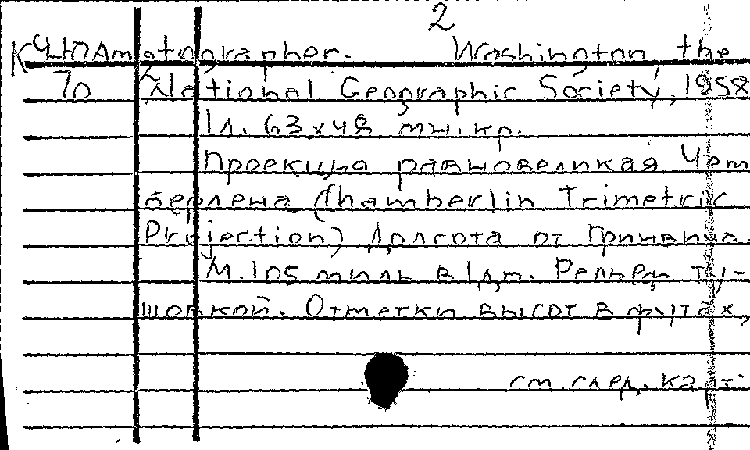 2
tnographer. Washington, the
70 National Geographic Society, 1958
1л. 63x48 мн.кр.
Проекция равновеликая Чем
берлена (Chamberlin Trimetric
Projection) Долгота от Гринвича.
М.105 миль в 1дм. Рельеф ту-
шовкой. Отметки высот в футах,
см.след.карт.